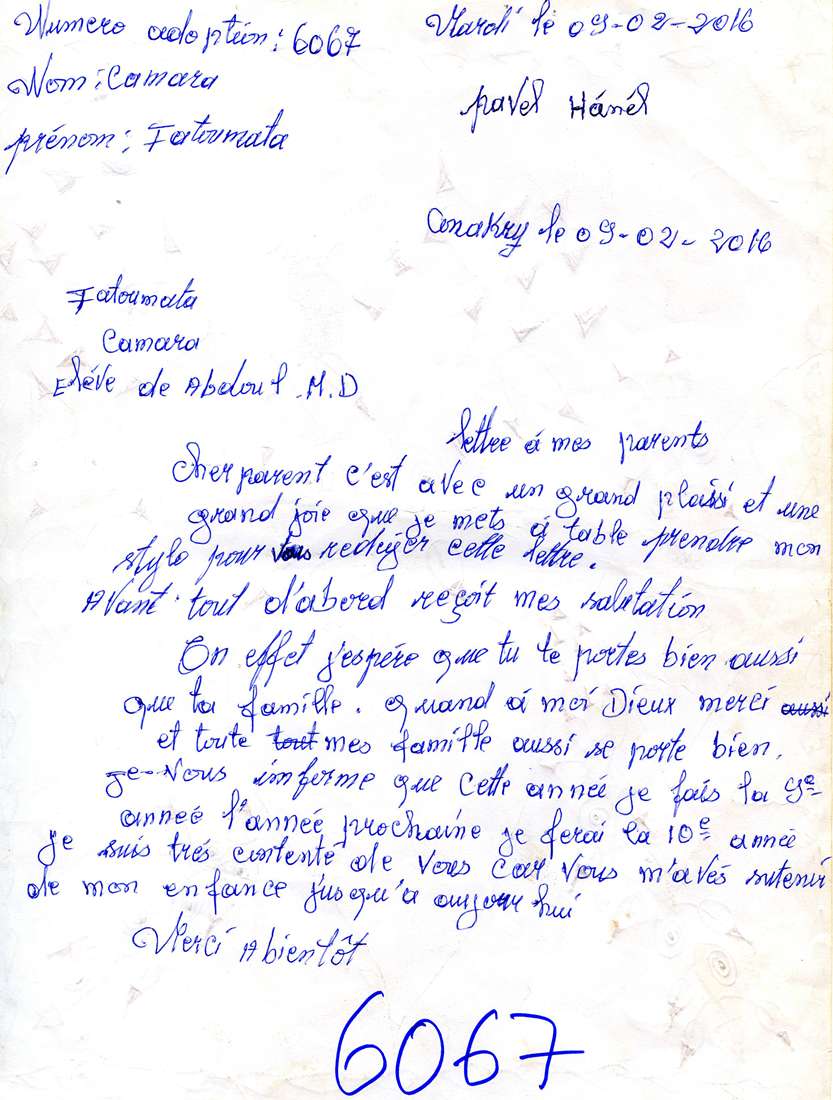 Numero adoption : 6067
Mardi le 09-02-2016
Nom : Camara
pavel Hánél
prénom : Fatoumata
Conakry le 09-02-2016
Fatoumata
Camara
Elève de Abdoul .M.D
lettre á mes parents
cher parent c'est avec un grand plaissi et une
grand joie que je mets á table prendre mon
stylo pour vous rediger cette lettre.
Avant tout d'abord reçoit mes salutation
En effet j'espére que tu te portes bien aussi
que ta famille. quand á moi Dieux merci aussi
et toute tout mes famille aussi se porte bien.
Je-Vous imforme que cette année je fais la 9e
anneé l'anneé prochaine je ferai la 10e année
je suis trés contenté de vous car vous m'avés sutenir
de mon enfance jusqu'a aujour hui
Merci Abientôt
6067